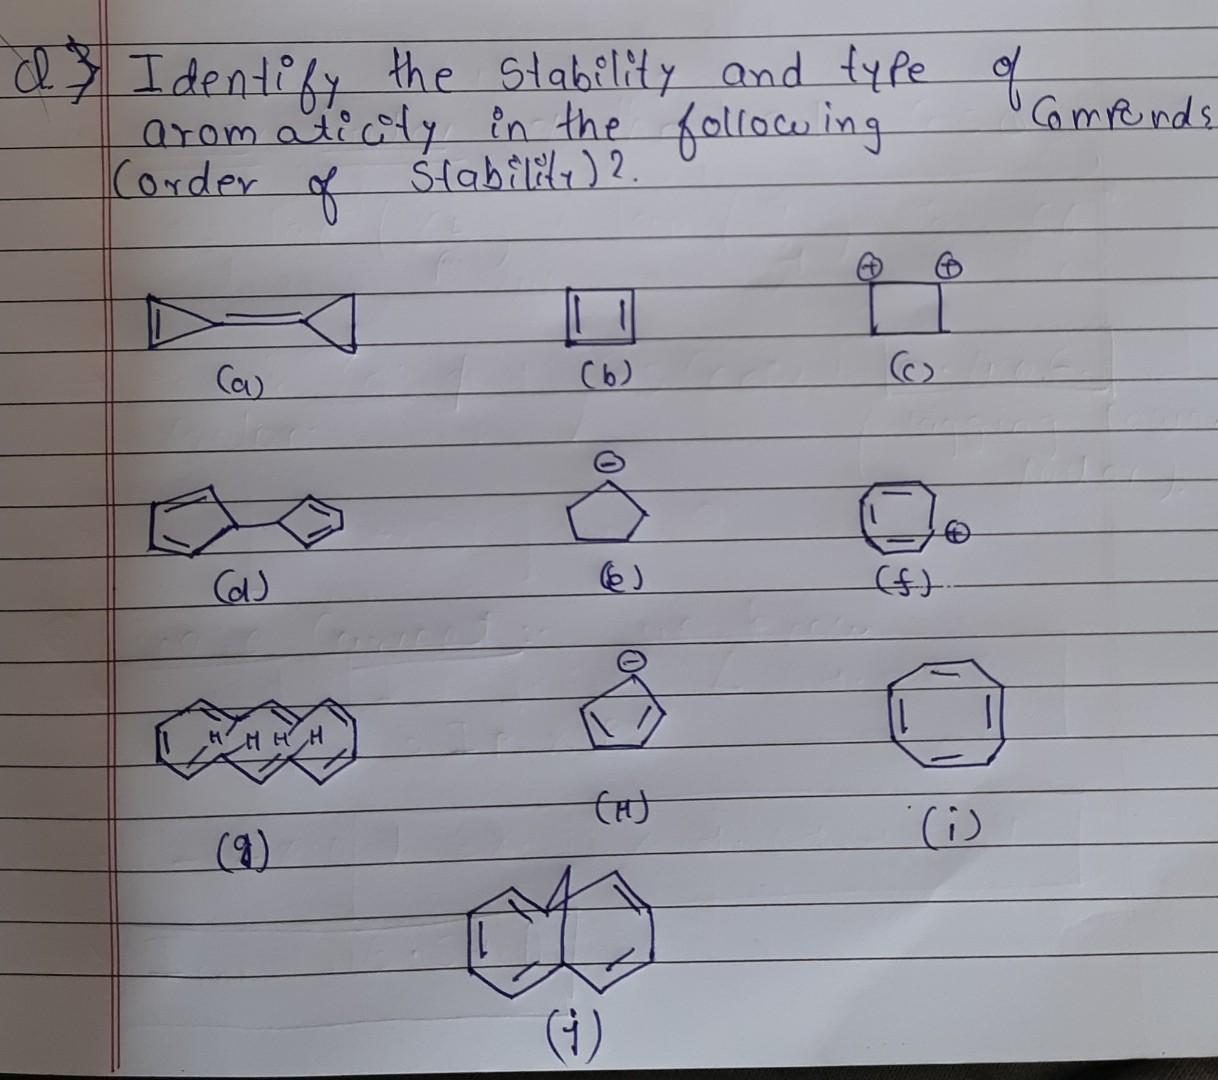 Q3 Identify the Stability and type of
aromaticity in the following Compends
(order of Stability)?.
⊕ ⊕
(a) (b) (c)
⊖
⊕
(d) (e) (f)
⊖
H H H H
(g) (H) (i)
(j)